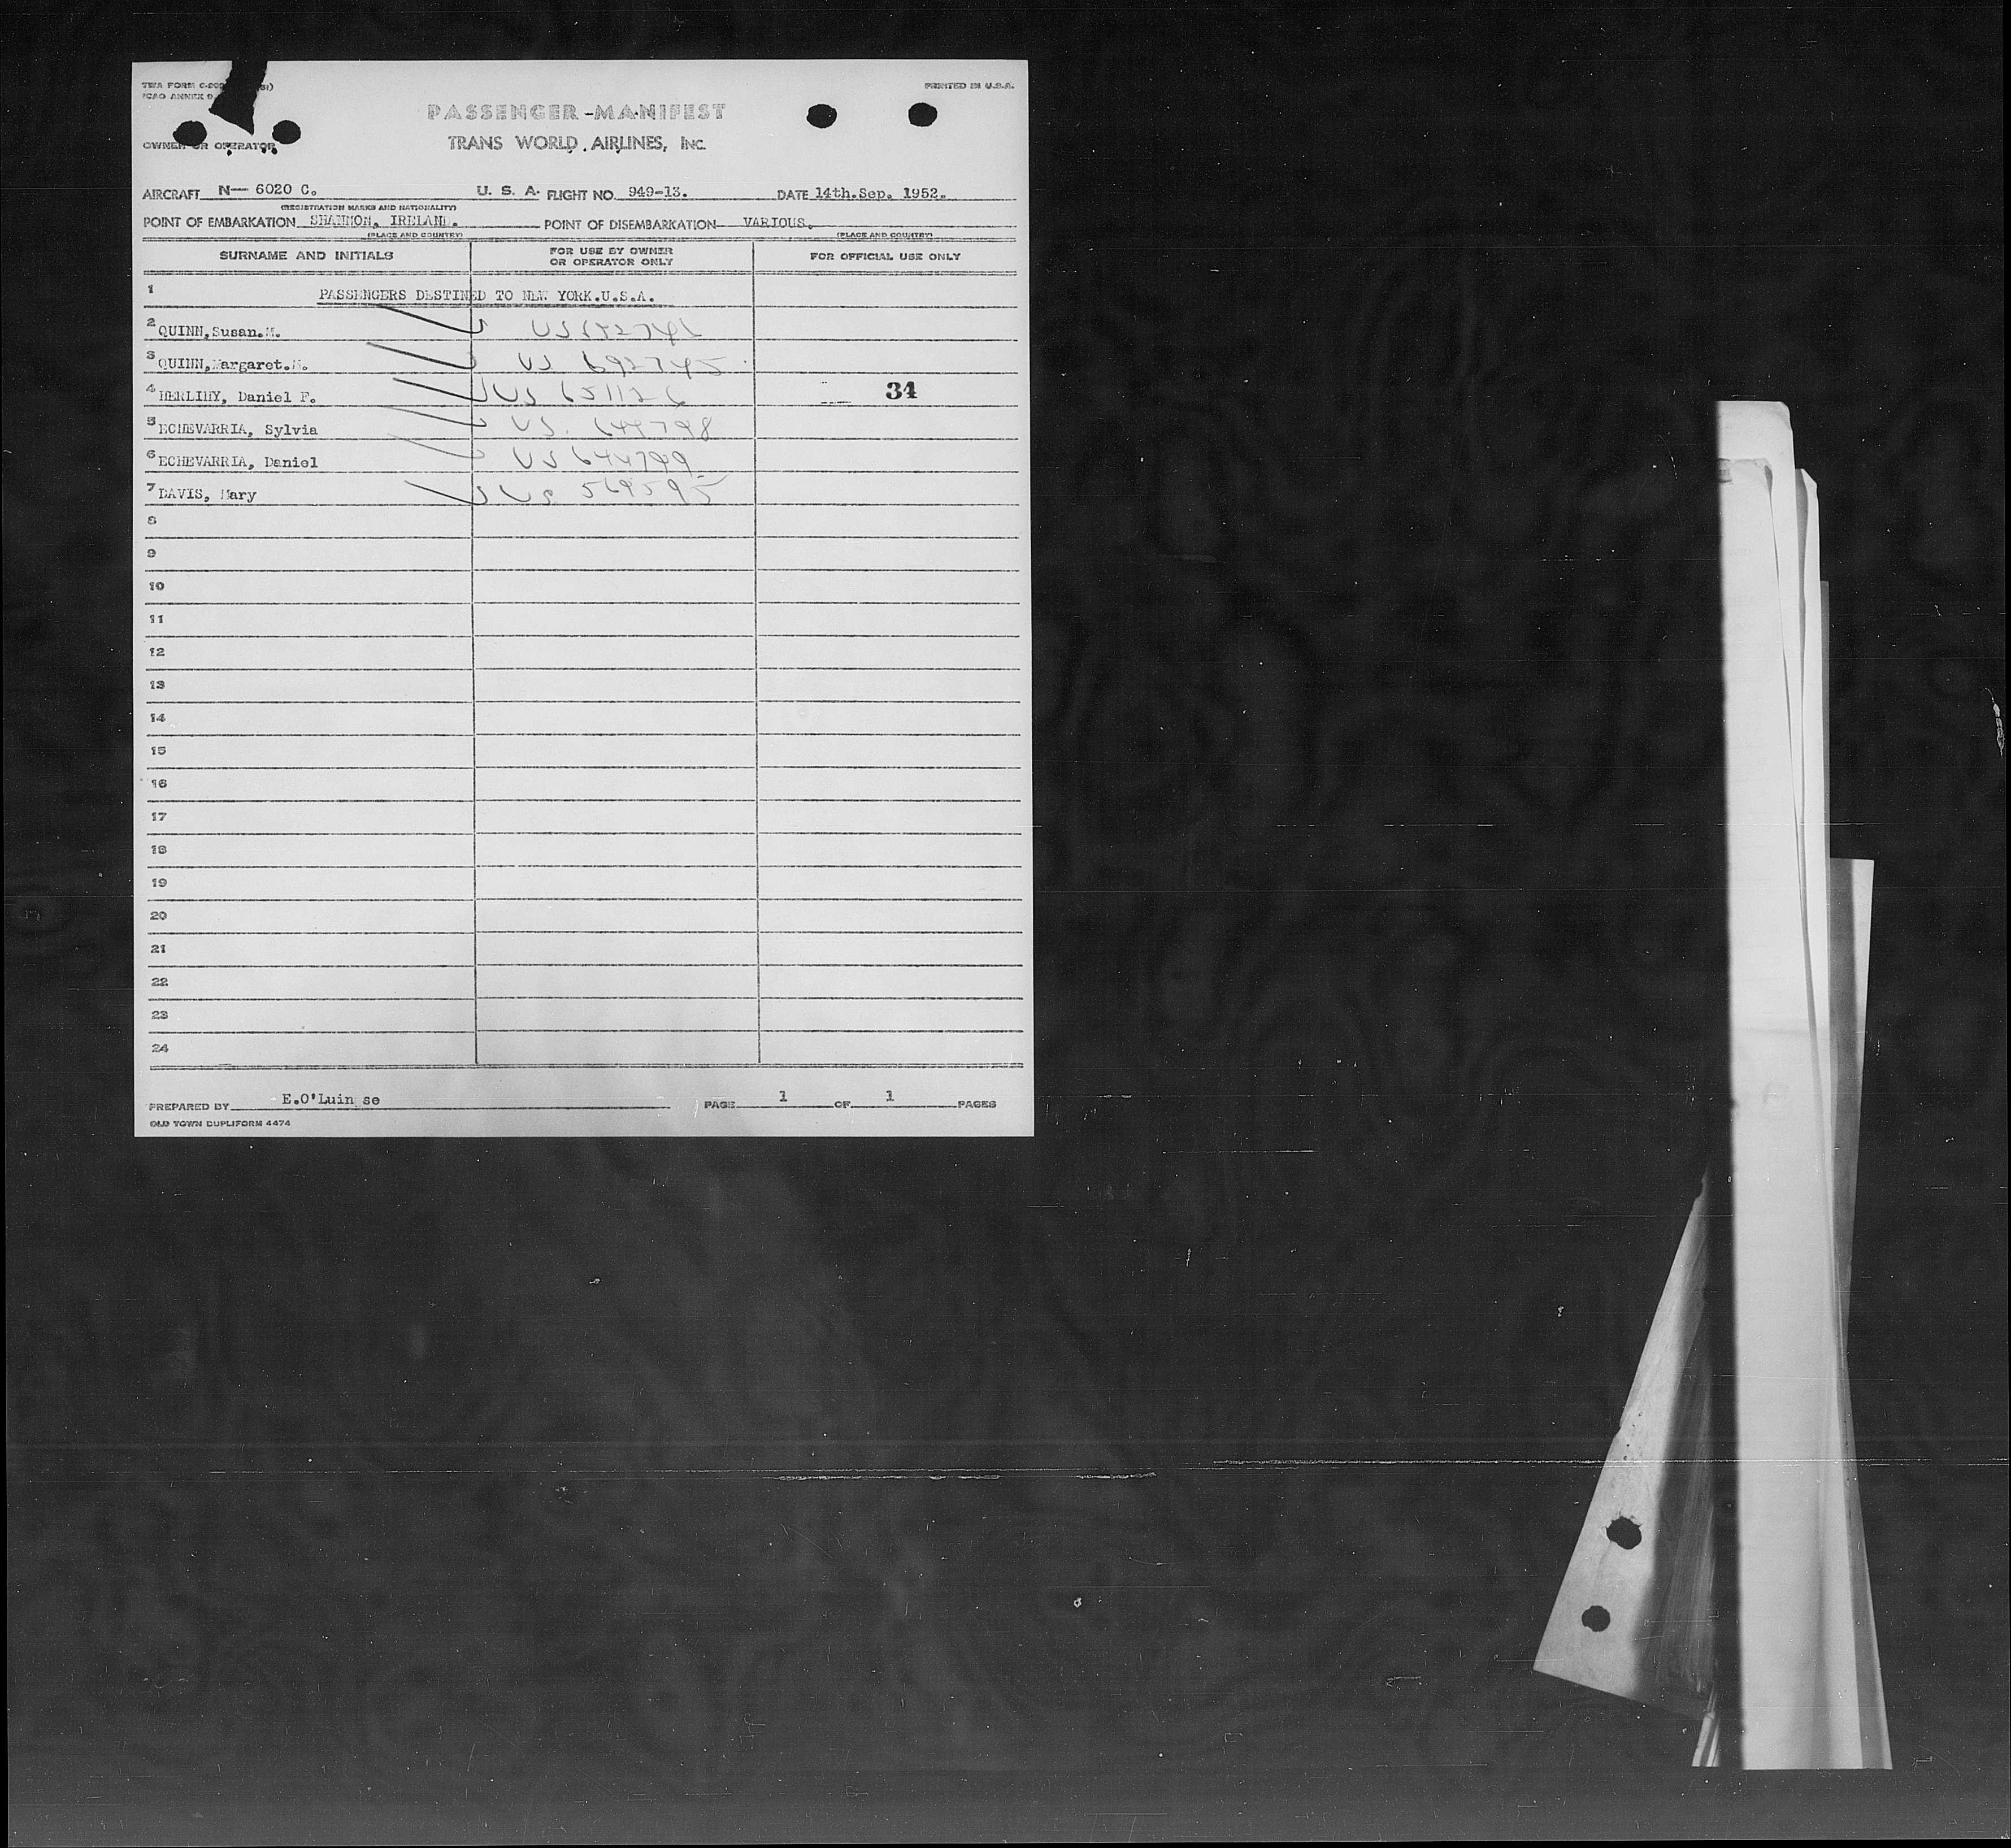 TWA FORM
PRINTED IN U.S.A.
ICAO ANNEX 9
PASSENGER-MANIFEST
OWNER OR OPERATOR
TRANS WORLD AIRLINES, INC.
AIRCRAFT N- 6020 C. U. S. A. FLIGHT NO. 949-13. DATE 14th.Sep. 1952.
(REGISTRATION MARKS AND NATIONALITY)
POINT OF EMBARKATION SHANNON, IRELAND. POINT OF DISEMBARKATION VARIOUS.
(PLACE AND COUNTRY) (PLACE AND COUNTRY)
SURNAME AND INITIALS FOR USE BY OWNER OR OPERATOR ONLY FOR OFFICIAL USE ONLY
1 PASSENGERS DESTINED TO NEW YORK.U.S.A.
2 QUINN,Susan.M. US
3 QUINN,Margaret.M. US 692745
4 HERLIHY, Daniel F. US 651126 34
5 ECHEVARRIA, Sylvia US. 644798
6 ECHEVARRIA, Daniel US 644799
7 DAVIS, Mary US 569595
8
9
10
11
12
13
14
15
16
17
18
19
20
21
22
23
24
PREPARED BY E.O'Luin se PAGE 1 OF 1 PAGES
OLD TOWN DUPLIFORM 4474